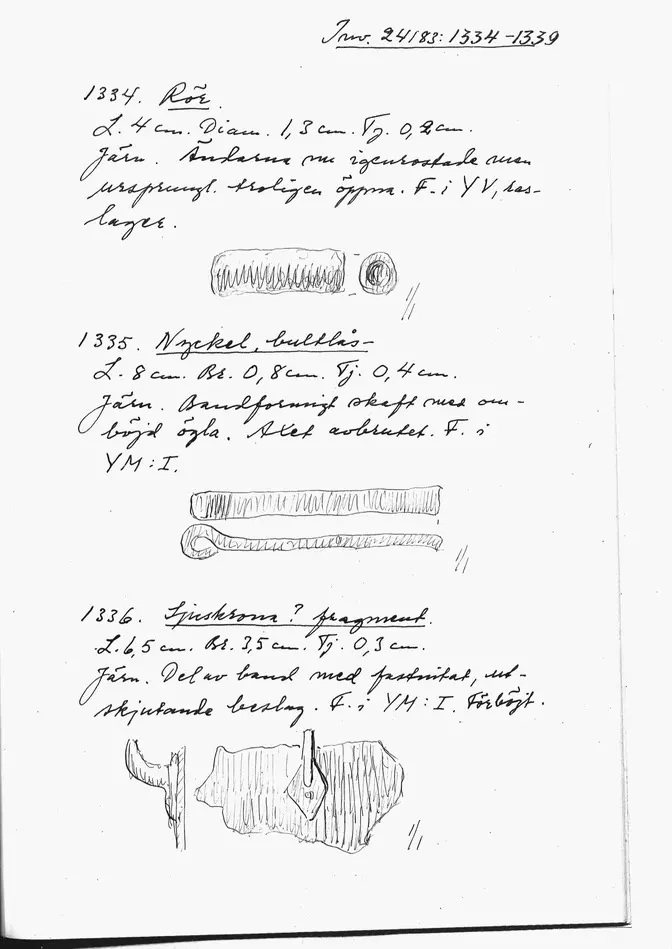 Inv. 24183: 1334-1339
1334. Rör.
L. 4 cm. Diam. 1,3 cm. Tj. 0,2 cm.
Järn. Ändarna nu igenrostade men
ursprungl. troligen öppna. F. i YV, ras-
lager.
1/1
1335. Nyckel, bultlås-
L. 8 cm. Br. 0,8 cm. Tj. 0,4 cm.
Järn. Bandformigt skaft med om-
böjd ögla. Axet avbrutet. F. i
YM: I.
1/1
1336. Ljuskrona? fragment.
L. 6,5 cm. Br. 3,5 cm. Tj. 0,3 cm.
Järn. Del av band med fastnitat, ut-
skjutande beslag. F. i YM: I. Förböjt.
1/1